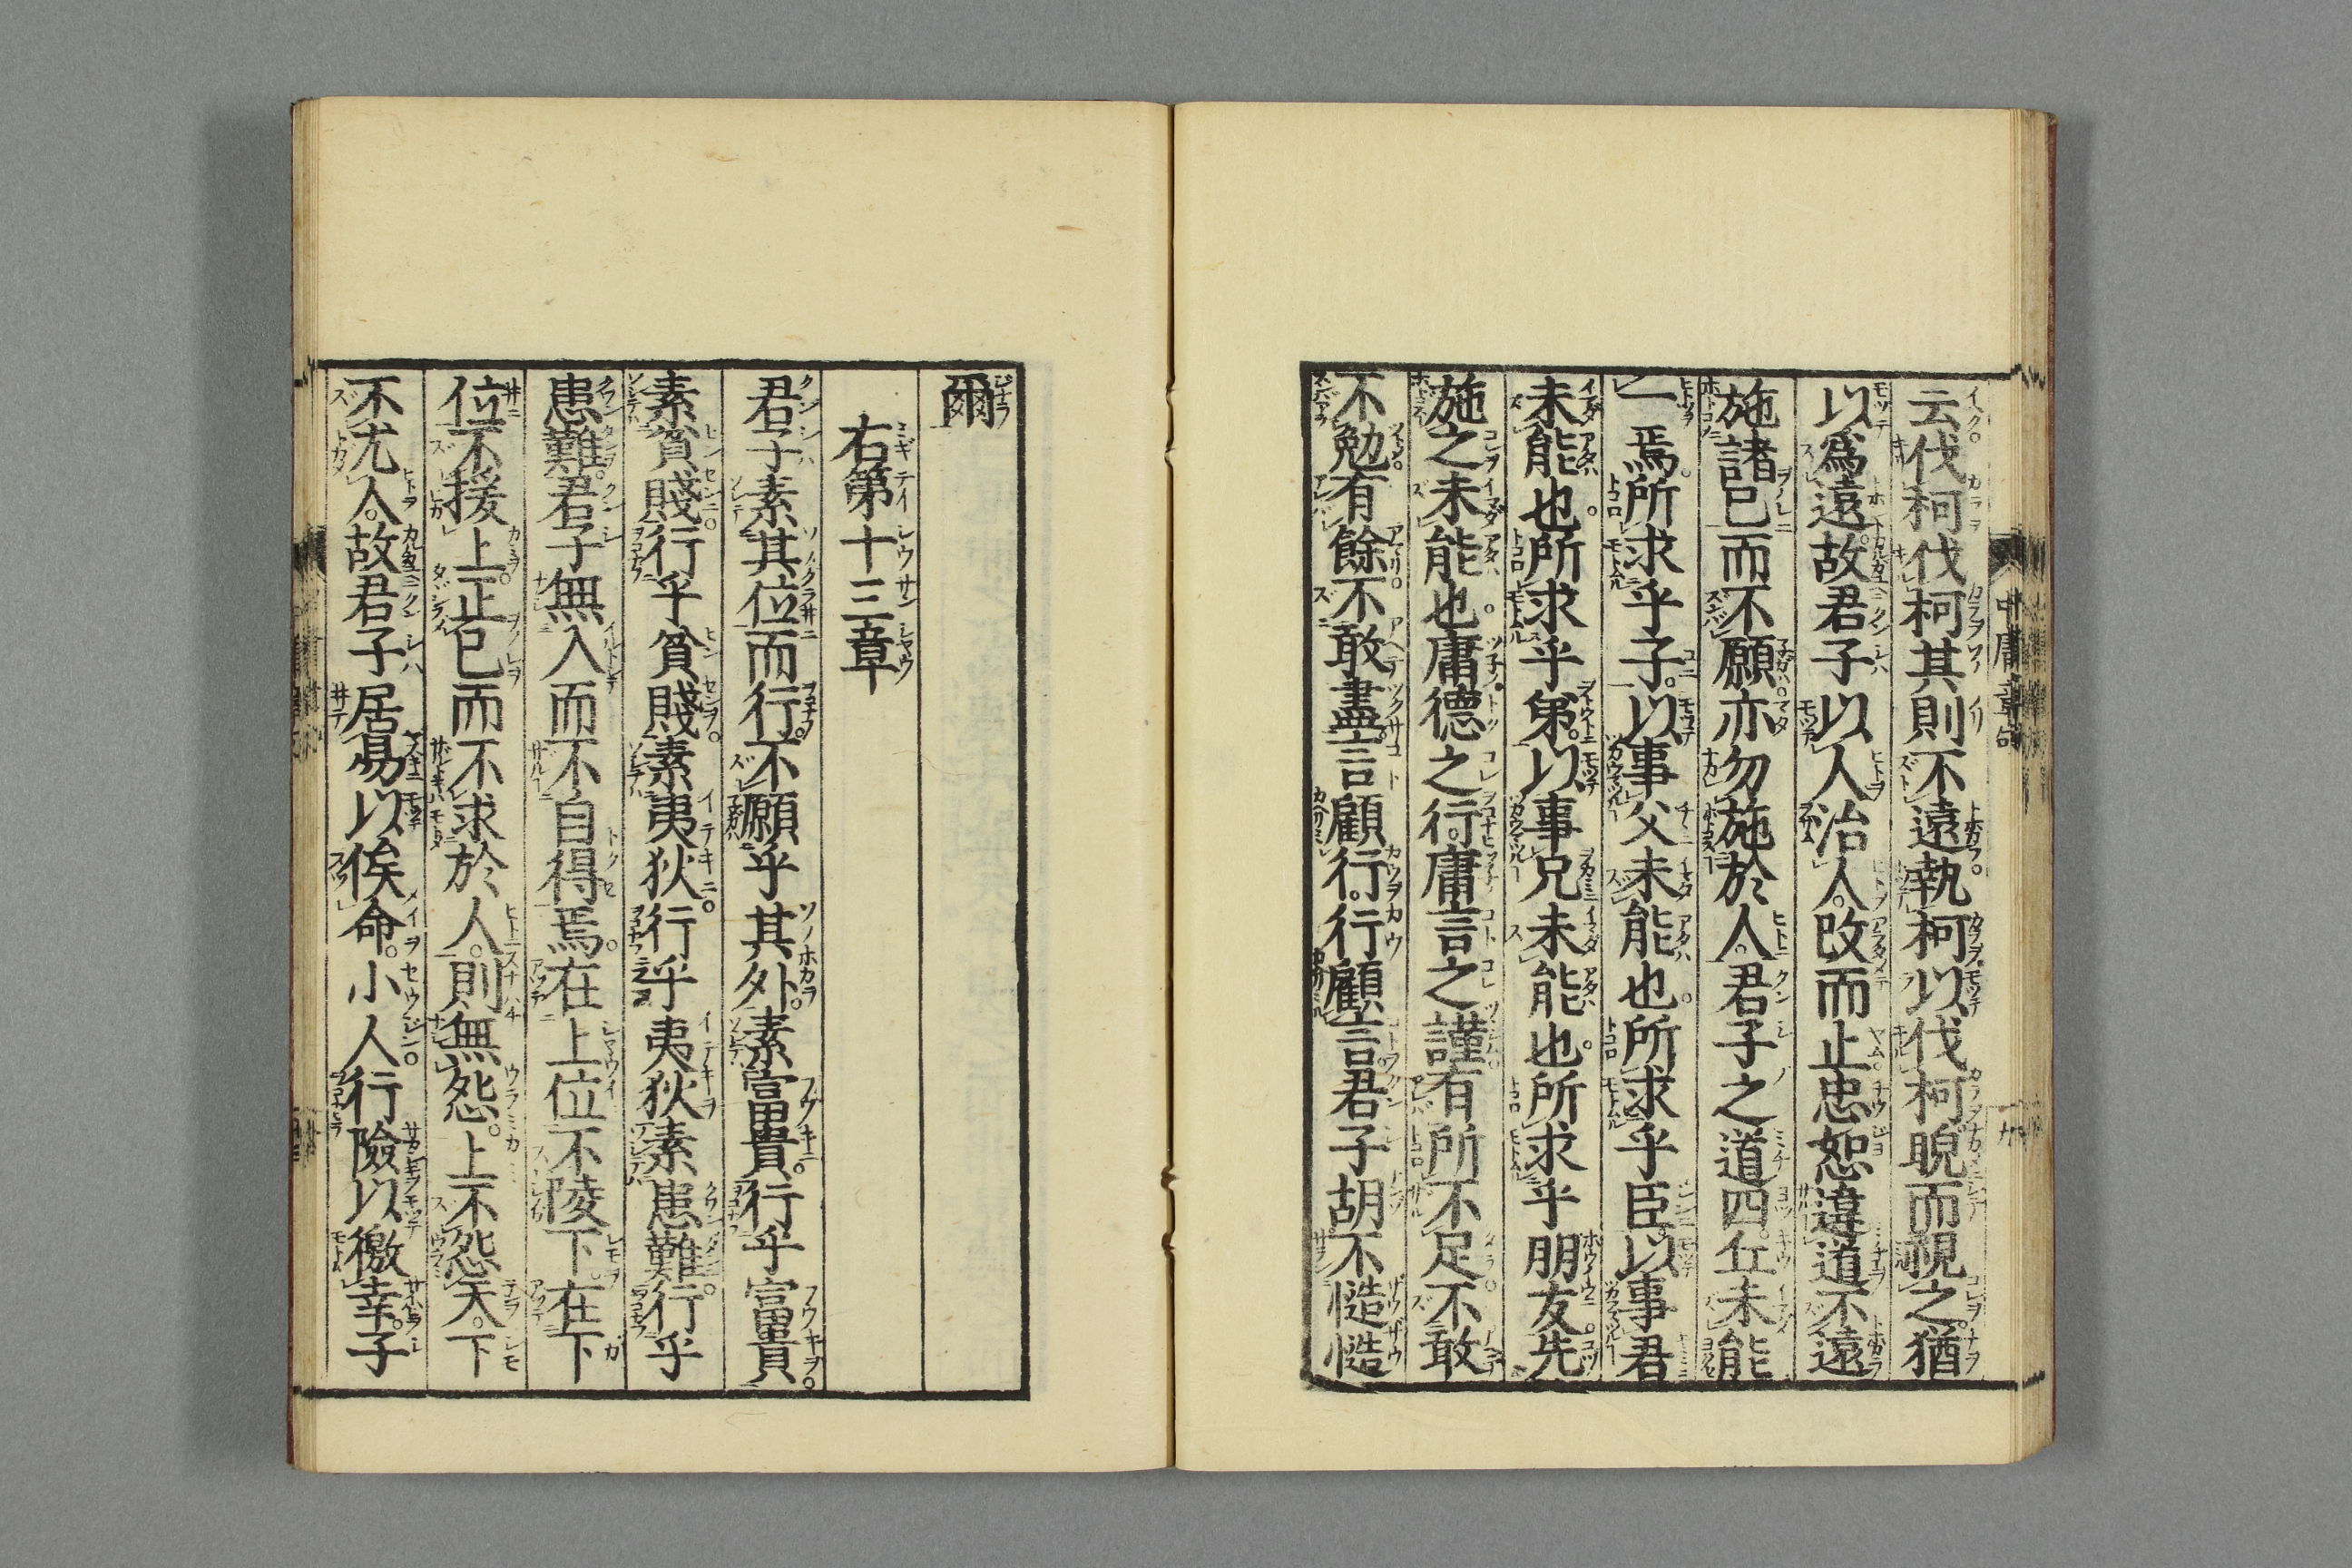 云伐柯伐柯其則不遠執柯以伐柯睨而視之猶
以爲遠故君子以人治人改而止忠恕違道不遠
施諸己而不願亦勿施於人君子之道四丘未能
一焉所求乎子以事父未能也所求乎臣以事君
未能也所求乎弟以事兄未能也所求乎朋友先
施之未能也庸德之行庸言之謹有所不足不敢
不勉有餘不敢盡言顧行行顧言君子胡不慥慥
爾
右第十三章
君子素其位而行不願乎其外素富貴行乎富貴
素貧賤行乎貧賤素夷狄行乎夷狄素患難行乎
患難君子無入而不自得焉在上位不陵下在下
位不援上正己而不求於人則無怨上不怨天下
不尤人故君子居易以俟命小人行險以徼幸子
中庸章句